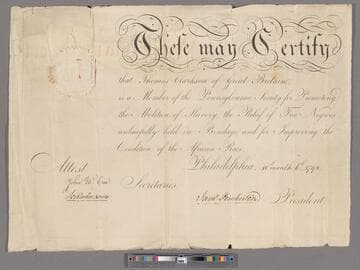 These may Certify
that Thomas Clarkson of Great Britain
is a Member of the Pennsylvania Society for Promoting
the Abolition of Slavery, the Relief of Free Negroes
unlawfully held in Bondage and for Improving the
Condition of the African Race.
Philadelphia month 6. 179
Attest
John
Secretaries
James Pemberton President